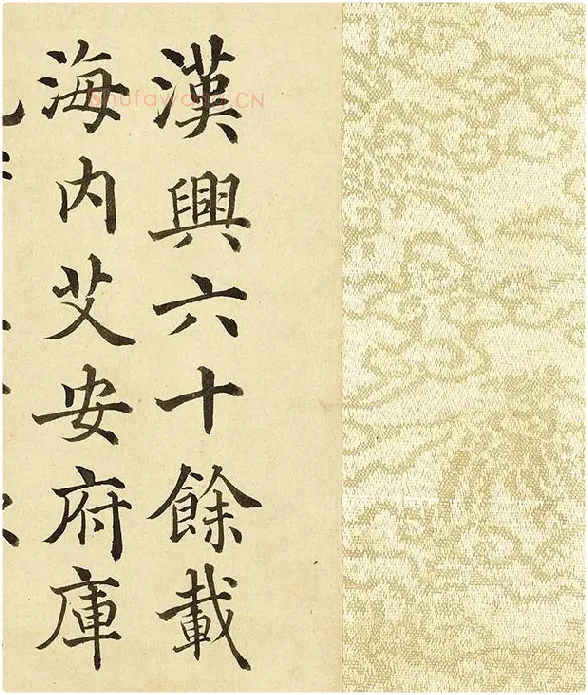 漢興六十餘載
海内艾安府庫
shufawang.CN